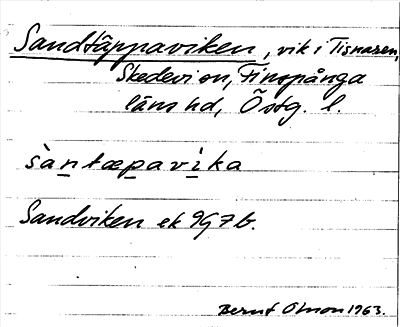 Sandtäppaviken, vik i Tisnaren,
Skedevi sn, Finspånga
läns hd, Östg. l.
sàntæpavìka
Sandviken ek 9G7b.
Bernt Olson 1963.